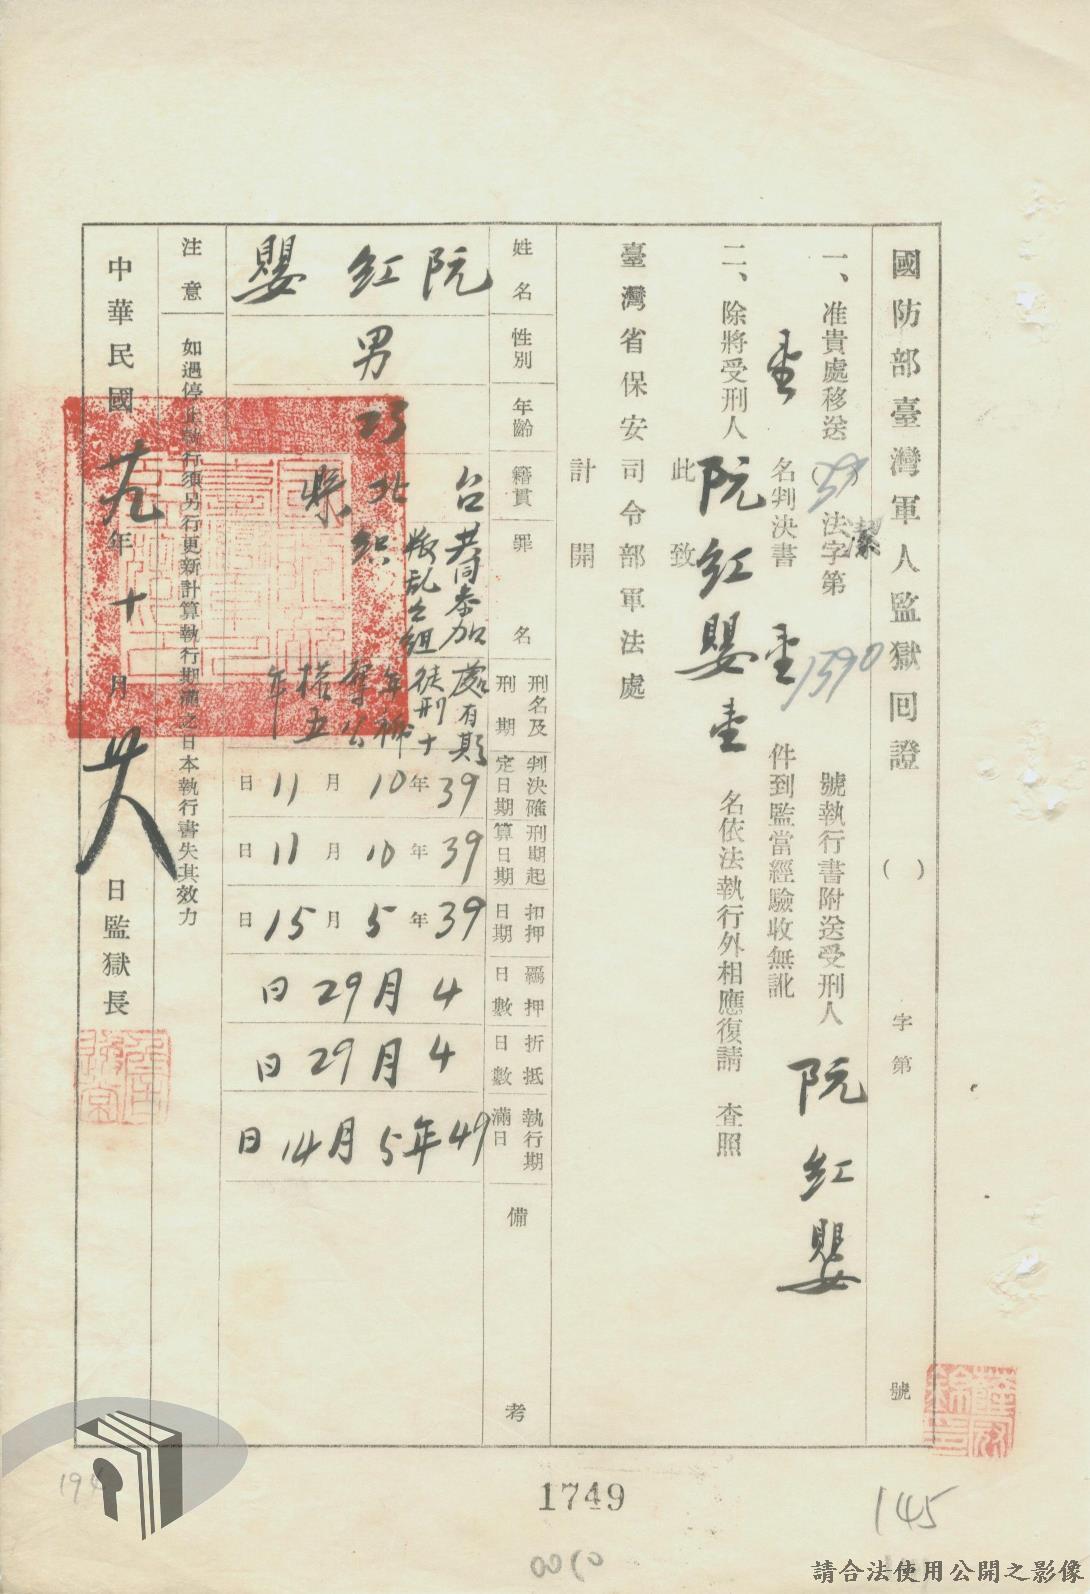 國防部臺灣軍人監獄回證 ( ) 字第 號
一、准貴處移送 (39) 潔 法字第 1590 號執行書附送受刑人 阮紅嬰
壹 名判決書 壹 件到監當經驗收無訛
二、除將受刑人 阮紅嬰壹 名依法執行外相應復請 查照
此致
臺灣省保安司令部軍法處
計開
姓名 阮紅嬰
性別 男
年齡
籍貫 台北縣
罪名 共同參加叛乱之組織
刑名及刑期 處有期徒刑十年褫奪公權五年
判決確定日期 39年10月11日
刑期起算日期 39年10月11日
扣押日期 39年5月15日
羈押日數 4月29日
折抵日數 4月29日
執行期滿日 49年5月14日
備考
注意 如過停止執行須另行更新計算執行期滿之日本執行書失其效力
中華民國 卅九 年 十 月 廿八 日監獄長
1749
145
194
請合法使用公開之影像